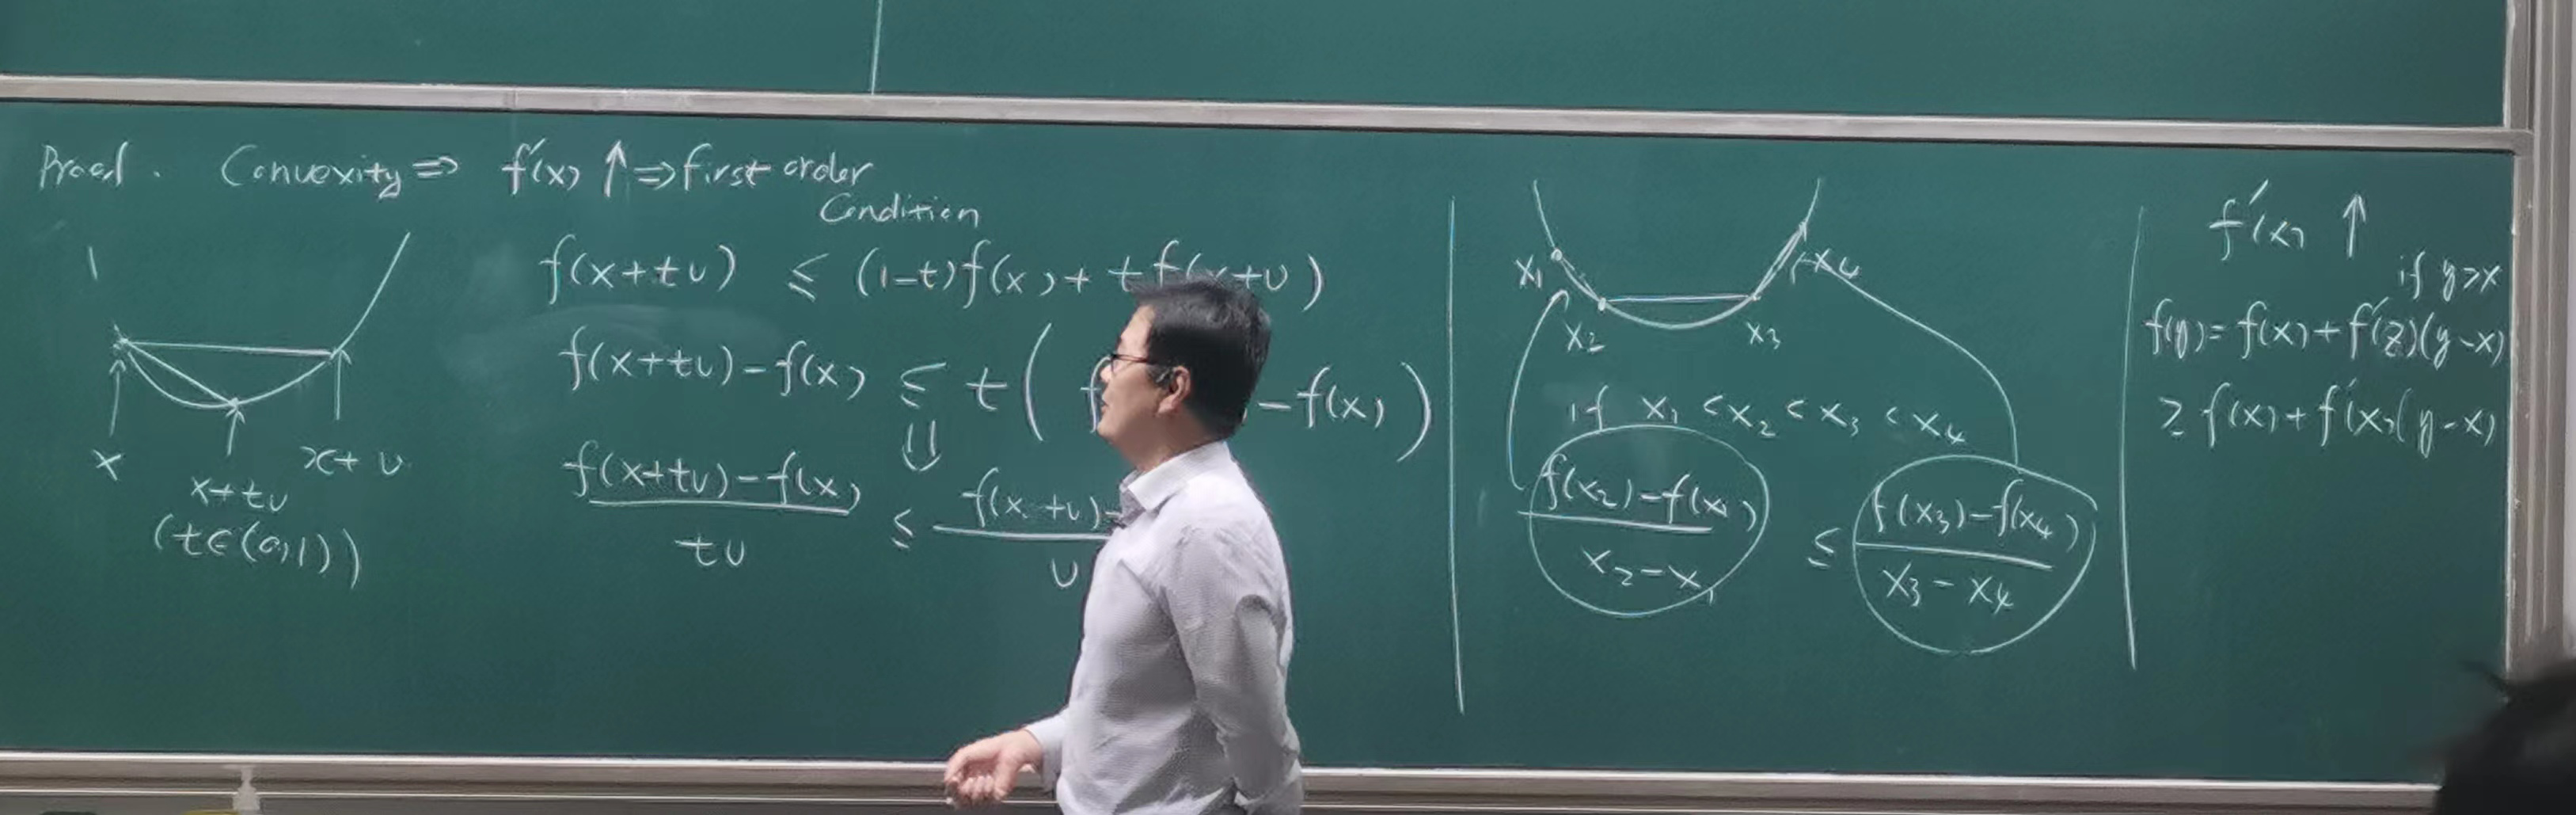 Proof. Convexity ⇒ f'(x) ↑ ⇒ first order
Condition
x
x+tv
(t∈(0,1))
x+v
f(x+tv) ≤ (1-t)f(x)+ tf(x+v)
f(x+tv)-f(x) ≤ t( f -f(x))
⇓
f(x+tv)-f(x)
tv
≤
f(x+v)-
v
x1
x2
x3
x4
if x1 < x2 < x3 < x4
f(x2)-f(x1)
x2-x1
≤
f(x3)-f(x4)
x3-x4
f'(x) ↑
if y>x
f(y)= f(x)+f'(z)(y-x)
≥ f(x)+f'(x)(y-x)